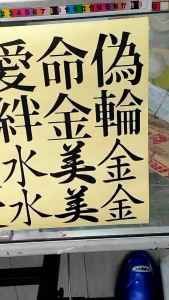 偽輪金金
命金美美
愛絆水水